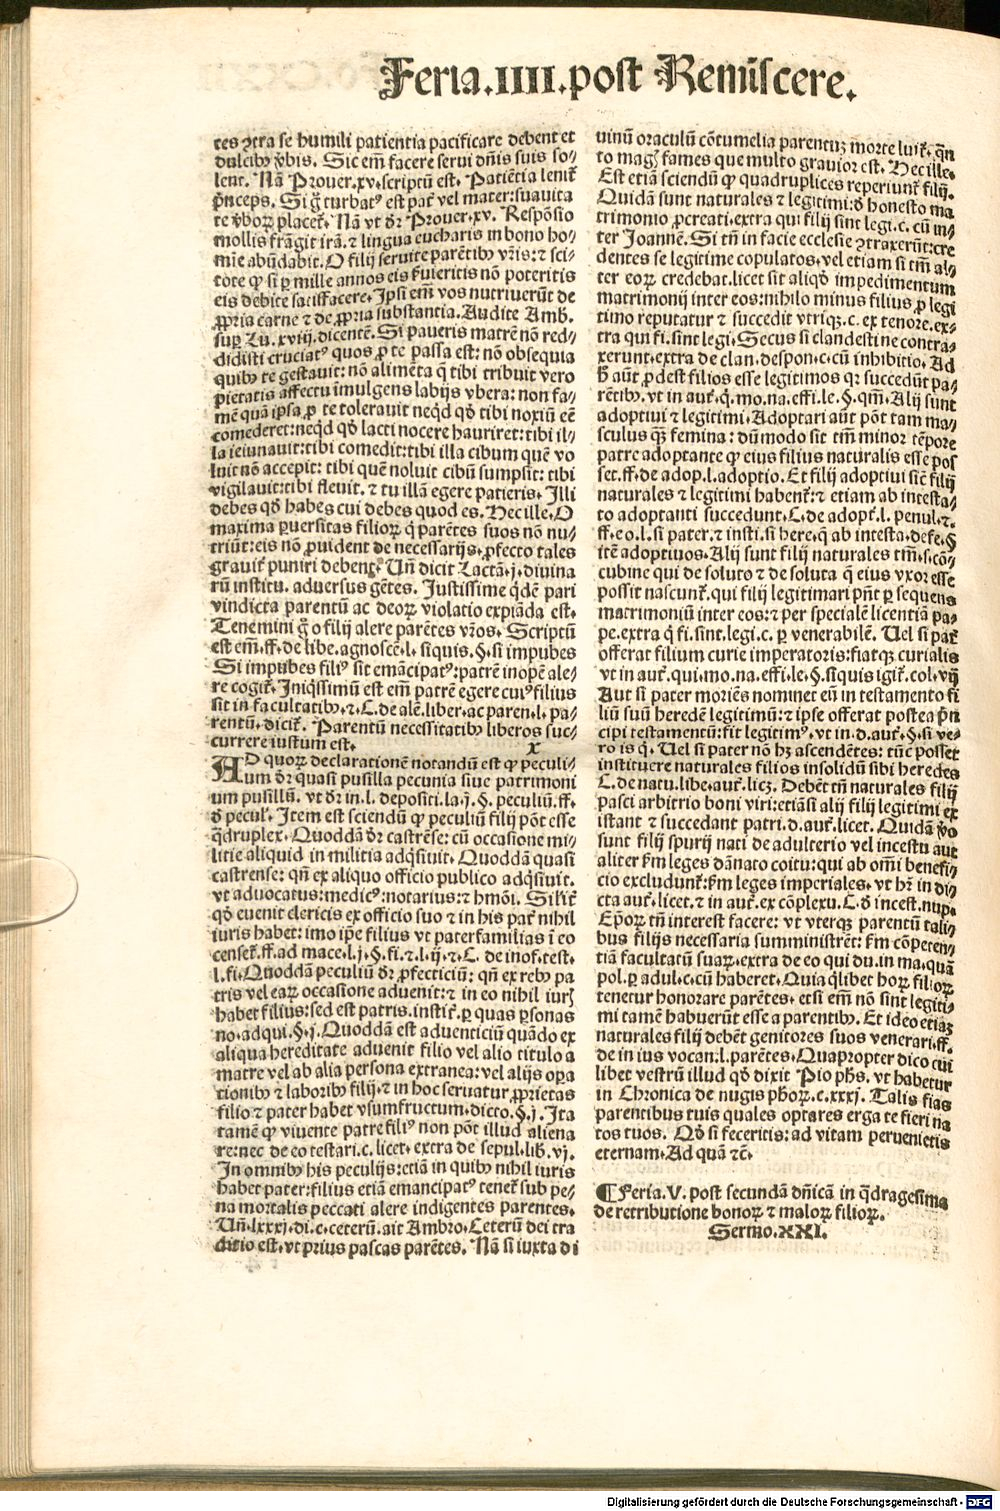 Feria.IIII.post Remiſcere.
tes ꝯtra se humili patientia pacificare debent et
dulcibꝰ v̓bis. Sic em̄ facere serui dn̄is suis so⸗
lent. Nā Prouer.xv.scriptū est. Patiētia lenit᷑
p̄nceps. Si g̊ turbatꝰ est pat᷑ vel mater:suauita
te v̓boꝝ placet᷑. Nā vt dr̄ Prouer.xv. Respōsio
mollis frāgit irā. ⁊ lingua eucharis in bono ho⸗
mīe abūdabit. O filij seruite parētibꝰ vr̄is: ⁊ sci⸗
tote ꝙ si ꝑ mille annos eis ẜuieritis nō poteritis
eis debite satiſfacere. Ipsi em̄ vos nutriuerūt de
ꝓpria carne ⁊ de ꝓpria substantia. Audite Amb.
sup̱ Lu. xviij. dicentē. Si paueris matrē nō red⸗
didisti cruciatꝰ quos ꝓ te passa est: nō obsequia
quibꝰ te gestauit: nō alimēta q̄ tibi tribuit vero
pietatis affectu īmulgens labijs vbera: non fa⸗
mē quā ipsa ꝓ te tolerauit neq̇d qd̓ tibi noxiū eēt
comederet:neq̇d qd̓ lacti nocere hauriret: tibi il⸗
la ieiunauit:tibi comedit:tibi illa cibum quē vo
luit nō accepit: tibi quē noluit cibū sumpsit: tibi
vigilauit:tibi fleuit. ⁊ tu illā egere patieris. Illi
debes qd̓ habes cui debes quod es. Hec ille. O
maxima ꝑuersitas filioꝝ q̇ parētes suos nō nu⸗
triūt:eis nō ꝓuident de necessarijs. ꝓfecto tales
grauit᷑ puniri debent. Un̄ dicit Lactā.j. diuina
rū institu. aduersus gētes. Justissime qd̄ē pari
vindicta parentū ac deoꝝ violatio expiāda est.
Tenemini g̊ o filij alere parētes vr̄os. Scriptū
est em̄.ff.de libe. agnoscē.l. siquis.§.si impubes
Si impubes filiꝰ sit emācipatꝰ:patrē inopē ale⸗
re cogit᷑. Iniq̇ssimū est em̄ patrē egere cuiꝰ filius
sit in facultatibꝰ.⁊.C.de alē.liber.ac paren.l. pa⸗
rentū. dicit᷑. Parentū necessitatibꝰ liberos suc⸗
currere iustum est. x
AD quoꝝ declarationē notandū est ꝙ peculi⸗
um dr̄ quasi pusilla pecunia siue patrimoni
um pusillū. vt dr̄ in.l. depositi.la.j.§. peculiū.ff.
d̓ pecul̓. Item est sciendū ꝙ peculiū filij pōt esse
q̄druplex. Quoddā dr̄ castrēse: cū occasione mi⸗
litie aliquid in militia adq̇siuit. Quoddā quasi
castrense: qn̄ ex aliquo officio publico adq̇siuit.
vt aduocatus:medicꝰ:notarius:⁊ hmōi. Silit᷑
qd̓ euenit clericis ex officio suo ⁊ in his pat᷑ nihil
iuris habet: imo ip̄e filius vt paterfamilias ī eo
censet᷑.ff.ad mace.l.j.§.fi.⁊.l.ij.⁊.C. de inof.test.
l.fi. Quoddā peculiū dr̄ ꝓfecticiū: qn̄ ex rebꝰ pa
tris vel eaꝝ occasione aduenit:⁊ in eo nihil iuris
habet filius:sed est patris.instit᷑.ꝑ quas ꝑsonas
no.adqui.§.j. Quoddā est aduenticiū quādo ex
aliqua hereditate aduenit filio vel alio titulo a
matre vel ab alia persona extranea: vel alijs oꝑa
tionibꝰ ⁊ laboribꝰ filij.⁊ in hoc seruatur ꝓprietas
filio ⁊ pater habet vsumfructum.dicto.§.j. Ita
tamē ꝙ viuente patre filiꝰ non pōt illud aliena
re:nec de eo testari.c. licet. extra de sepul.lib.vj.
In omnibꝰ his peculijs:etiā in quibꝰ nihil iuris
habet pater:filius etiā emancipatꝰ tenet᷑ sub pe⸗
na mortalis peccati alere indigentes parentes.
Un̄.lxxxj.di.c.ceterū.ait Ambro. Ceterū dei tra
ditio est.vt prius pascas parētes. Nā si iuxta di
uinū oraculū cōtumelia parentuꝫ morte luit᷑. qn̄
to magꝭ fames que multo grauior est. Hec ille.
Est etiā sciendū ꝙ quadruplices reperiunt᷑ filij.
Quidā sunt naturales ⁊ legitimi:d̓ honesto ma
trimonio ꝓcreati.extra qui filij sint legi.c. cū in⸗
ter Joannē. Si tn̄ in facie ecclesie ꝯtraxerūt:cre
dentes se legitime copulatos.vel etiam si tm̄ al⸗
ter eoꝝ credebat.licet sit aliqd̓ impedimentum
matrimonij inter eos:nihilo minus filius ꝓ legi
timo reputatur ⁊ succedit vtriqꝫ.c. ex tenore.ex⸗
tra qui fi.sint legi. Secus si clandestine contra⸗
xerunt.extra de clan.despon.c.cū inhibitio. Ad
h̓ aūt ꝓdest filios esse legitimos qꝛ succedūt pa⸗
rētibꝰ.vt in aut᷑.q̇.mo.na.effi.le.§.qm̄. Alij sunt
adoptiui ⁊ legitimi. Adoptari aūt pōt tam ma⸗
sculus qꝫ femina: dū modo sit tm̄ minor tēpore
patre adoptante ꝙ eius filius naturalis esse pos
set.ff.de adop.l.adoptio. Et filij adoptiui sic̄ filij
naturales ⁊ legitimi habent᷑:⁊ etiam ab intesta⸗
to adoptanti succedunt. C.de adopt᷑.l. penul.⁊.
ff.eo.l.si pater.⁊ insti.si here.q ab intesta.defe.§
itē adoptiuos. Alij sunt filij naturales tm̄.s.cō⸗
cubine qui de soluto ⁊ de soluta q̄ eius vxoꝛ esse
possit nascunt᷑.qui filij legitimari pn̄t ꝑ sequens
matrimoniū inter eos:⁊ per specialē licentiā pa⸗
pe.extra q̇ fi.sint.legi.c. ꝑ venerabilē. Uel si pat᷑
offerat filium curie imperatoris:fiatqꝫ curialis
vt in aut᷑.qui.mo.na.effi.le.§.siquis igit᷑.col.vij
Aut si pater moriēs nominet eū in testamento fi
liū suū heredē legitimū:⁊ ipse offerat postea p̄n
cipi testamentū:fit legitimꝰ.vt in.d.aut᷑.§.si ve⸗
ro is q̇. Uel si pater nō hꝫ ascendētes: tūc posset
instituere naturales filios insolidū sibi heredes
C.de natu.libe.aut᷑.licꝫ. Debēt tn̄ naturales filij
pasci arbitrio boni viri:etiāsi alij filij legitimi ex
istant ⁊ succedant patri.d.aut᷑.licet. Quidā v̓o
sunt filij spurij nati de adulterio vel incestu aut
aliter ẜm leges dānato coitu:qui ab om̄i benefi⸗
cio excludunt᷑:ẜm leges imperiales.vt hr̄ in di⸗
cta aut᷑.licet.⁊ in aut᷑.ex cōplexu.C.d̓ incest.nup.
Ep̄oꝝ tn̄ interest facere: vt vterqꝫ parentū tali⸗
bus filijs necessaria sumministrēt: ẜm cōpeten⸗
tiā facultatū suaꝝ.extra de eo qui du.in ma.quā
pol.ꝑ adul.c.cū haberet. Quia q̇libet hoꝝ filioꝝ
tenetur honorare parētes. etsi em̄ nō sint legiti⸗
mi tamē habuerūt esse a parentibꝰ. Et ideo etiaꝫ
naturales filij debēt genitores suos venerari.ff.
de in ius vocan.l.parētes. Quapropter dico cui
libet vestrū illud qd̓ dixit Pio ph̄s. vt habetur
in Chronica de nugis ph̄oꝝ.c.xxxj. Talis fias
parentibus tuis quales optares erga te fieri na
tos tuos. Qd̓ si feceritis: ad vitam peruenietis
eternam. Ad quā ⁊c̄.
¶Feria.V. post secundā dn̄icā in q̄dragesima
de retributione bonoꝝ ⁊ maloꝝ filioꝝ.
Sermo.XXI.
Digitalisierung gefördert durch die Deutsche Forschungsgemeinschaft - DFG